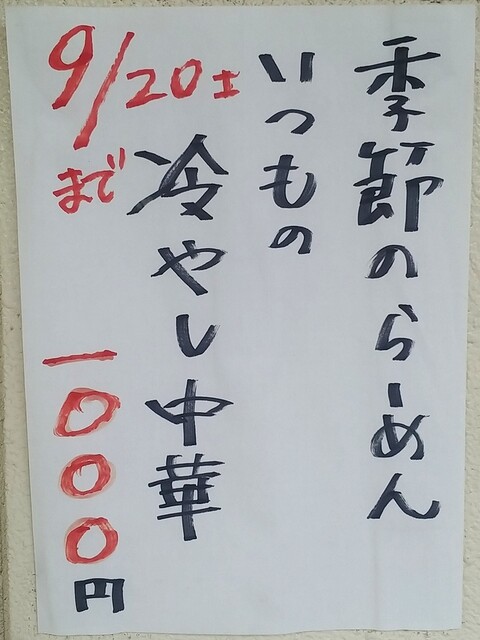 季節のらーめん
いつもの
冷やし中華
9/20土
まで
一〇〇〇円